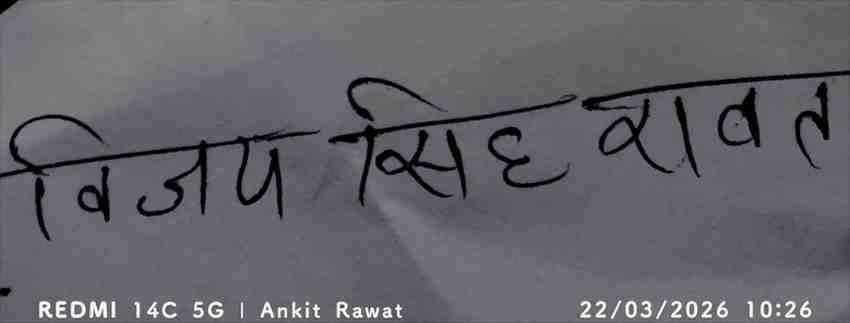 विजय सिह रावत
REDMI 14C 5G | Ankit Rawat 22/03/2026 10:26